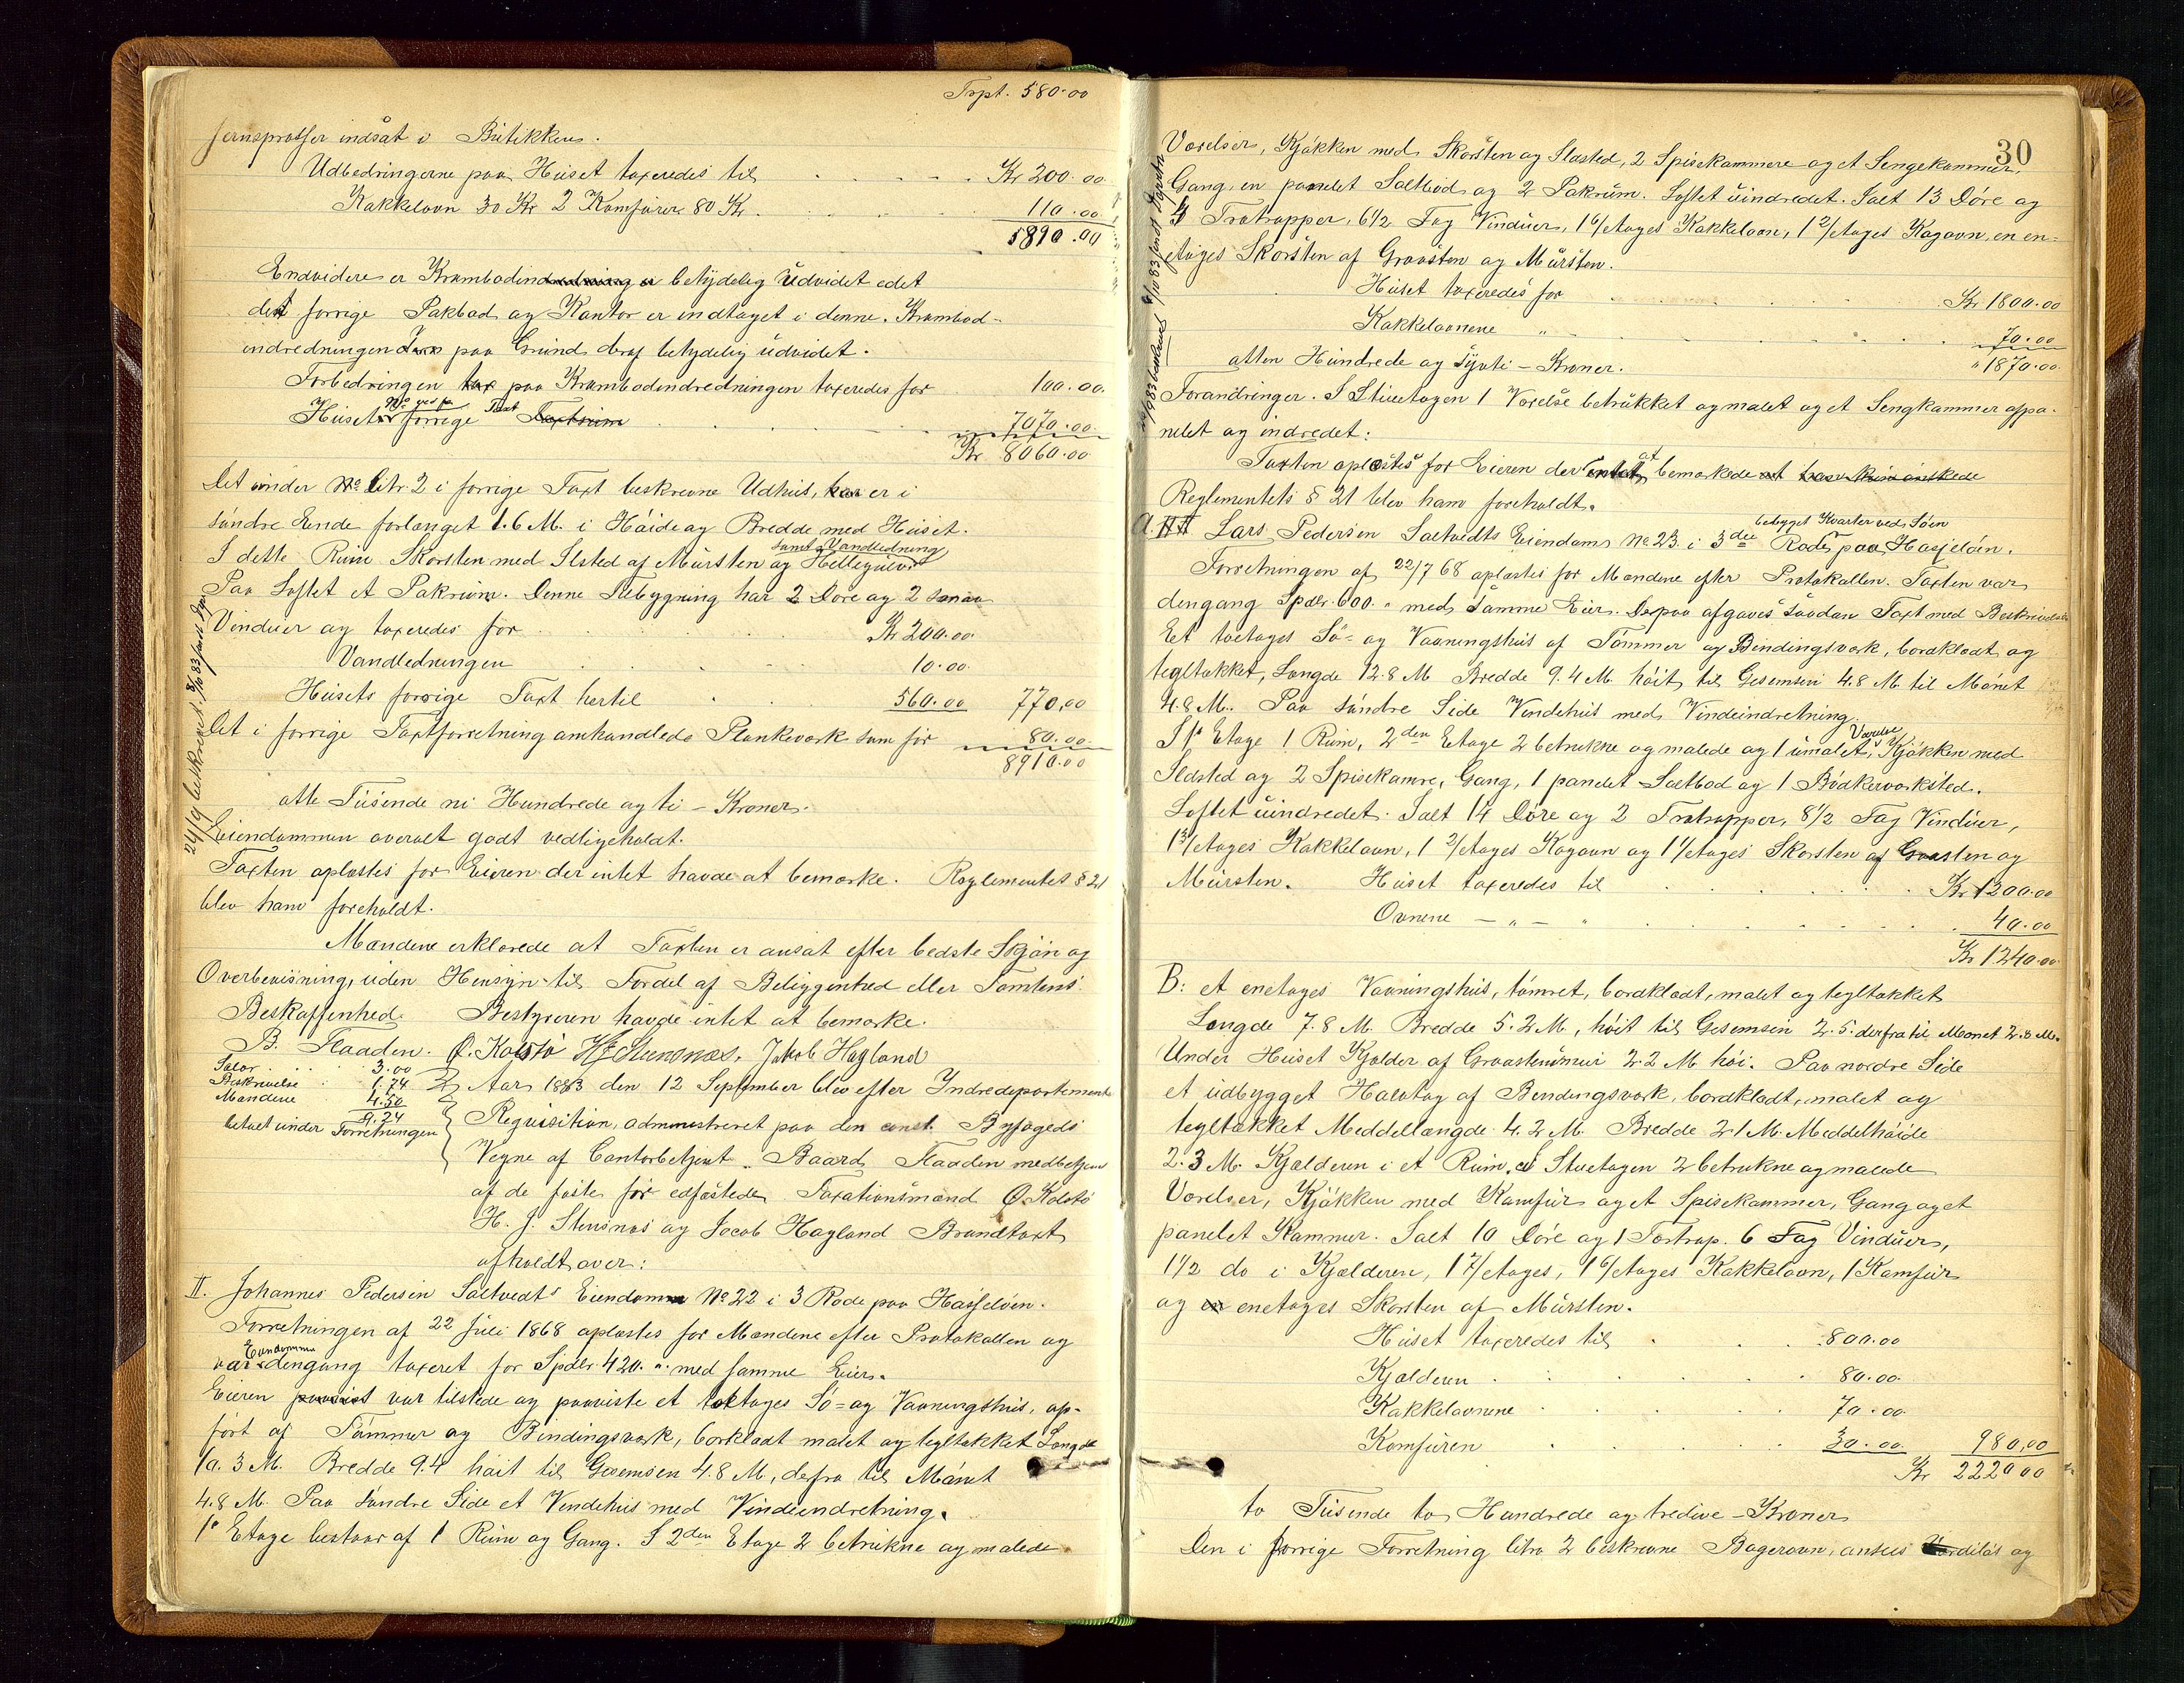 Trpt. 580.00
Jernsprosser indsat i Butikken.
Udbedringerne paa Huset taxeredes til Kr 200.00
Kakkelovn 30 Kr 2 Komfurer 80 Kr. 110.00
890.00
Endvidere er Krambodind betydelig udvidet edet
det forrige Pakbod og Kontor er indtaget i denne. Krambod-
indredningen paa Grund deraf betydelig udvidet.
Forbedringen paa Krambodindredningen taxeredes for 100.00.
Husets forrige Taxt 7070.00
Kr 8060.00
Det under No Litr. 2 i forrige Taxt beskrevne Udhus, er i
søndre Ende forlænget 1.6 M. i Høide og Bredde med Huset.
samt Vandledning
I dette Rum Skorsten med Ilsted af Mursten og Hellegulv
Paa Loftet et Pakrum. Denne Tilbygning har 2 Døre og 2 smaa
Vinduer og taxeredes for Kr 200.00
Vandledningen 10.00
Husets forrige Taxt hertil 560.00 770,00
Det i forrige Taxtforretning omhandlede Plankeværk som før 80.00
8910.00
otte Tusende ni Hundrede og ti – Kroner.
Eiendommen overalt godt vedligeholdt.
Taxten oplæstes for Eieren der intet havde at bemærke. Reglementet § 21
blev ham foreholdt.
Mændene erklærede at Taxten er ansat efter bedste Skjøn og
Overbevisning, uden Hensyn til Fordel af Beliggenhed eller Tomtens
Beskaffenhed. Bestyreren havde intet at bemærke.
B. Flaaden. O. Kolstø H J Stensnæs. Jakob Hagland
Salær 3.00
Beskrivelse 1.74
Mændene 4.50
9.24
betalt under Forretningen
Aar 1883 den 12 September blev efter Indredepartementets
Requisition, administreret paa den const. Byfogeds
Vegne af Contorbetjent Baard Flaaden medbetjent
af de faste før edfæstede Taxationsmænd O. Kolstø
H. J. Stensnæs og Jacob Hagland Brandtaxt
afholdt over:
II. Johannes Pedersen Saltvedts Eiendom No 22 i 3 Rode paa Hasseløen.
Forretningen af 22 Juli 1868 oplæstes for Mændene efter Protokollen og
Eiendommen
var dengang taxeret for Spdlr 420. " med samme Eier.
Eieren var tilstede og paaviste et toetages Sø= og Vaaningshus, op-
ført af Tømmer og Bindingsværk, bordklædt malet og tegltækket Længde
10.3 M. Bredde 9.4 høit til Gesemsen 4.8 M, derfra til Mønet
4.8 M. Paa søndre Side et Vindehus med Vindeindretning.
1ste Etage bestaar af 1 Rum og Gang. I 2den Etage 2 betrukne og malede
30
Værelser, Kjøkken med Skorsten og Ilsted, 2 Spisekammere og et Sengekammer.
Gang en panelet Saltbod og 2 Pakrum. Loftet uindredet. Ialt 13 Døre og
4 Trætrapper, 6 1/2 Fag Vinduer, 1 6/Etages Kakkelovn, 1 2/Etages Kogovn, en en=
etages Skorsten af Graasten og Mursten.
Huset taxeredes for Kr 1800.00
Kakkelovnene " 70.00
" 1870.00
atten Hundrede og Sytti – Kroner.
Forandringer. I Stueetagen 1 Værelse betrukket og malet og et Sengkammer afpa-
nelet og indredet.
Taxten oplæstes for Eieren der intet at bemærkede
Reglementets § 21 blev ham foreholdt.
bebygget Kvarter ved Søen
A. III Lars Pedersen Saltvedts Eiendom No 23 i 3die Rode paa Hasseløen.
Forretningen af 22/7 68 oplæstes for Mændene efter Protokollen. Taxten var
dengang Spdlr. 600. " med samme Eier. Derpaa afgaves saadan Taxt med Beskrivelse
Et toetages Sø= og Vaaningshus af Tømmer og Bindingsværk, bordklædt og
tegltækket, Længde 12.8 M Bredde 9.4 M. høit til Gesemsen 4.8 M. til Mønet
4.8 M. Paa søndre Side Vindehus med Vindeindretning.
Værelse
I 1ste Etage 1 Rum, 2den Etage 2 betrukne og malede og 1 umalet, Kjøkken med
Ildsted og 2 Spisekamre, Gang, 1 panelet Saltbod og 1 Bødkerværksted.
Loftet uindredet. Ialt 14 Døre og 2 Trætrapper, 8 1/2 Fag Vinduer,
1 3/Etages Kakkelovn, 1 2/Etages Kogovn og 1 1/etages Skorsten af Graasten og
Mursten. Huset taxeredes til Kr 1200.00
Ovnene – " – " 40.00
Kr 1240.00
B: et enetages Vaaningshus, tømret, bordklædt, malet og tegltækket
Længde 7.8 M. Bredde 5.2 M, høit til Gesemsen 2.5. derfra til Mønet 2.8 M.
Under Huset Kjælder af Graastensmur 2.2 M høi. Paa nordre Side
et udbygget Halvtag af Bindingsværk, bordklædt, malet og
tegltækket Meddellængde 4.2 M. Bredde 2.1 M. Meddelhøide
2.3 M. Kjælderen i et Rum. Stuetagen 2 betrukne og malede
Værelser, Kjøkken med Komfur og et Spisekammer, Gang og et
panelet Kammer. Ialt 10 Døre og 1 Trætrap. 6 Fag Vinduer,
1 1/2 do i Kjælderen, 1 7/Etages, 1 6/Etages Kakkelovn, 1 Komfur
og enetages Skorsten af Mursten.
Huset taxeredes til 800.00
Kjælderen 80.00
Kakkelovnene 70.00
Komfuren 30.00 980,00
Kr 2220.00
to Tusende to Hundrede og tredive – Kroner
Den i forrige Forretning litra 2 beskrevne Bagerovn, ansees værdiløs og